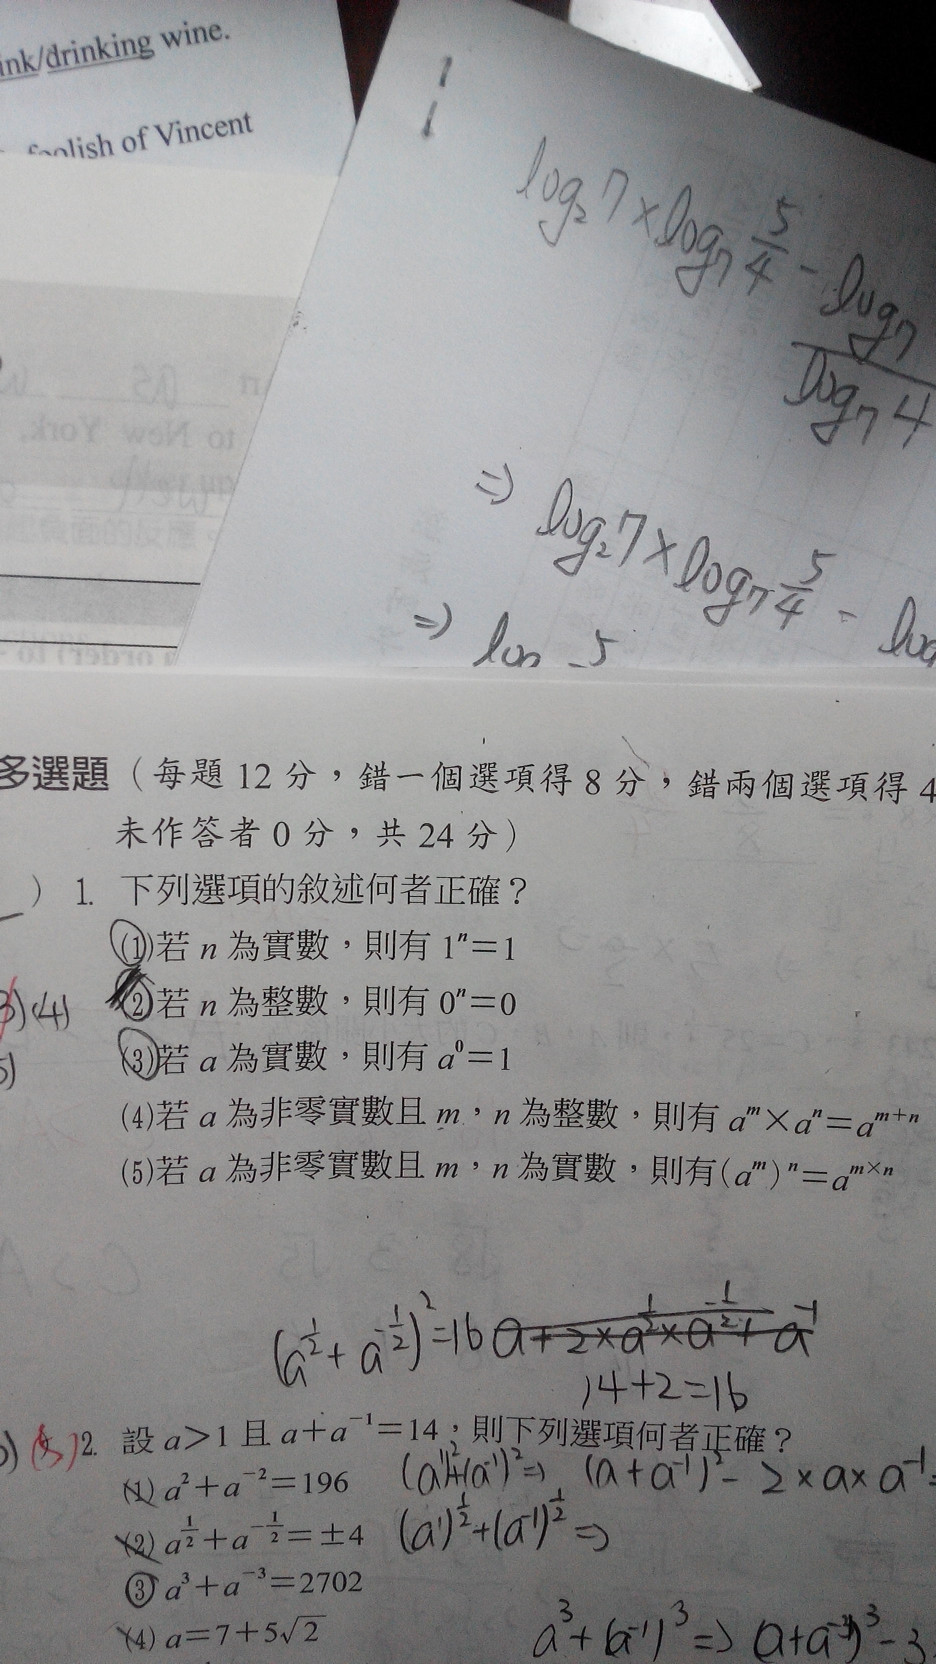 ink/drinking wine.
foolish of Vincent
log₂7×log₇5/4-log₇/log₇4
⇒ log₂7×log₇5/4-
⇒
to New York,
多選題（每題 12 分，錯一個選項得 8 分，錯兩個選項得 4
未作答者 0 分，共 24 分）
) 1. 下列選項的敘述何者正確？
(1)若 n 為實數，則有 1ⁿ=1
(2)若 n 為整數，則有 0ⁿ=0
(4)
(3)若 a 為實數，則有 a⁰=1
(4)若 a 為非零實數且 m，n 為整數，則有 aᵐ×aⁿ=aᵐ⁺ⁿ
(5)若 a 為非零實數且 m，n 為實數，則有(aᵐ)ⁿ=aᵐ˟ⁿ
(a^{1/2}+a^{-1/2})²=16 a+2×a^{1/2}×a^{-1/2}+a⁻¹
14+2=16
2. 設 a>1 且 a+a⁻¹=14，則下列選項何者正確？
(1) a²+a⁻²=196 (a¹)²+(a⁻¹)²⇒ (a+a⁻¹)²-2×a×a⁻¹=
(2) a^{1/2}+a^{-1/2}=±4 (a¹)^{1/2}+(a⁻¹)^{1/2}⇒
(3) a³+a⁻³=2702
(4) a=7+5√2 a³+(a⁻¹)³⇒(a+a⁻¹)³-3